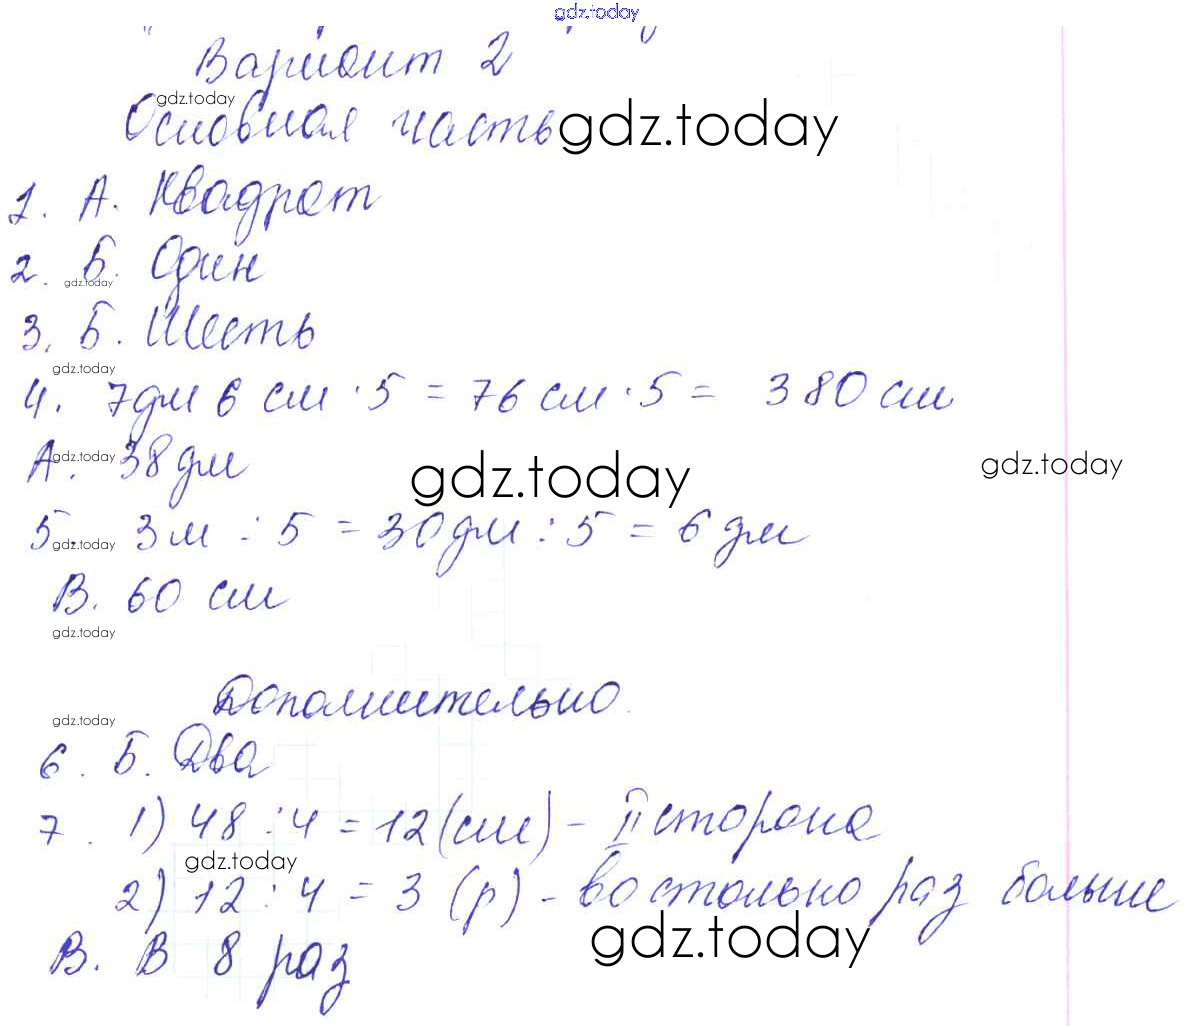 gdz.today
Вариант 2
gdz.today
Основная часть
gdz.today
1. А. Квадрат
2. Б. Один
gdz.today
3. Б. Шесть
gdz.today
4. 7дм 6 см · 5 = 76 см · 5 = 380 см
А. 38 дм
gdz.today
gdz.today
gdz.today
5. 3 м : 5 = 30 дм : 5 = 6 дм
gdz.today
В. 60 см
gdz.today
Дополнительно
gdz.today
6. Б. Два
7. 1) 48 : 4 = 12 (см) - II сторона
gdz.today
2) 12 : 4 = 3 (р) - во столько раз больше
gdz.today
В. В 8 раз